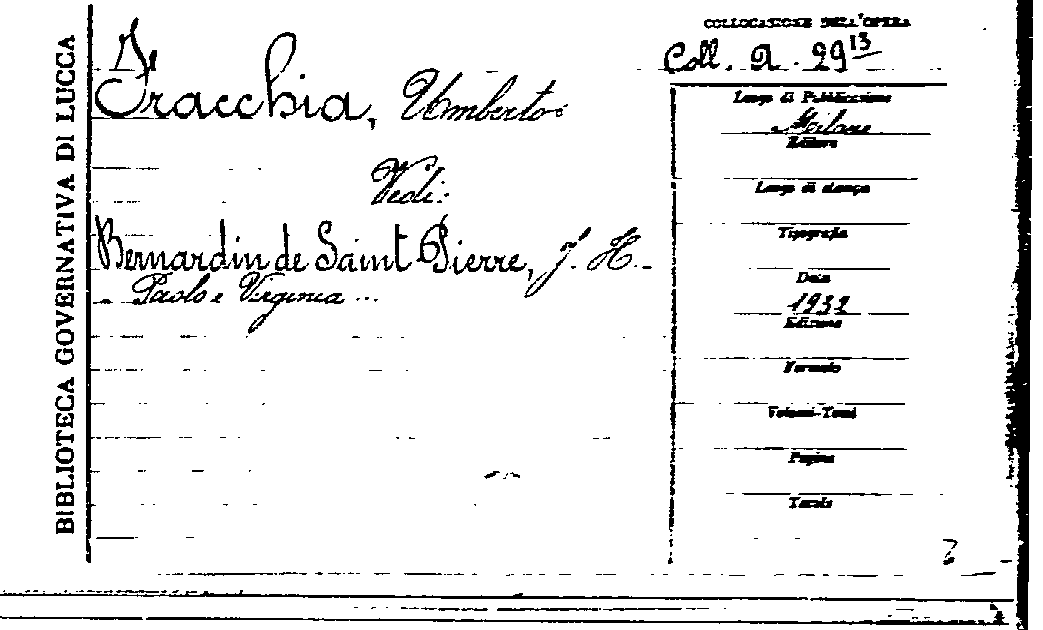 BIBLIOTECA GOVERNATIVA DI LUCCA
Fracchia, Umberto
Vedi:
Bernardin de Saint Pierre, J. H.
Paolo e Virginia ...
COLLOCAZIONE DELL'OPERA
Coll. A. 29¹³
Luogo di Pubblicazione
Milano
Editore
Luogo di stampa
Tipografia
Data
1932
Edizione
Formato
Volumi-Tomi
Pagine
Tavole